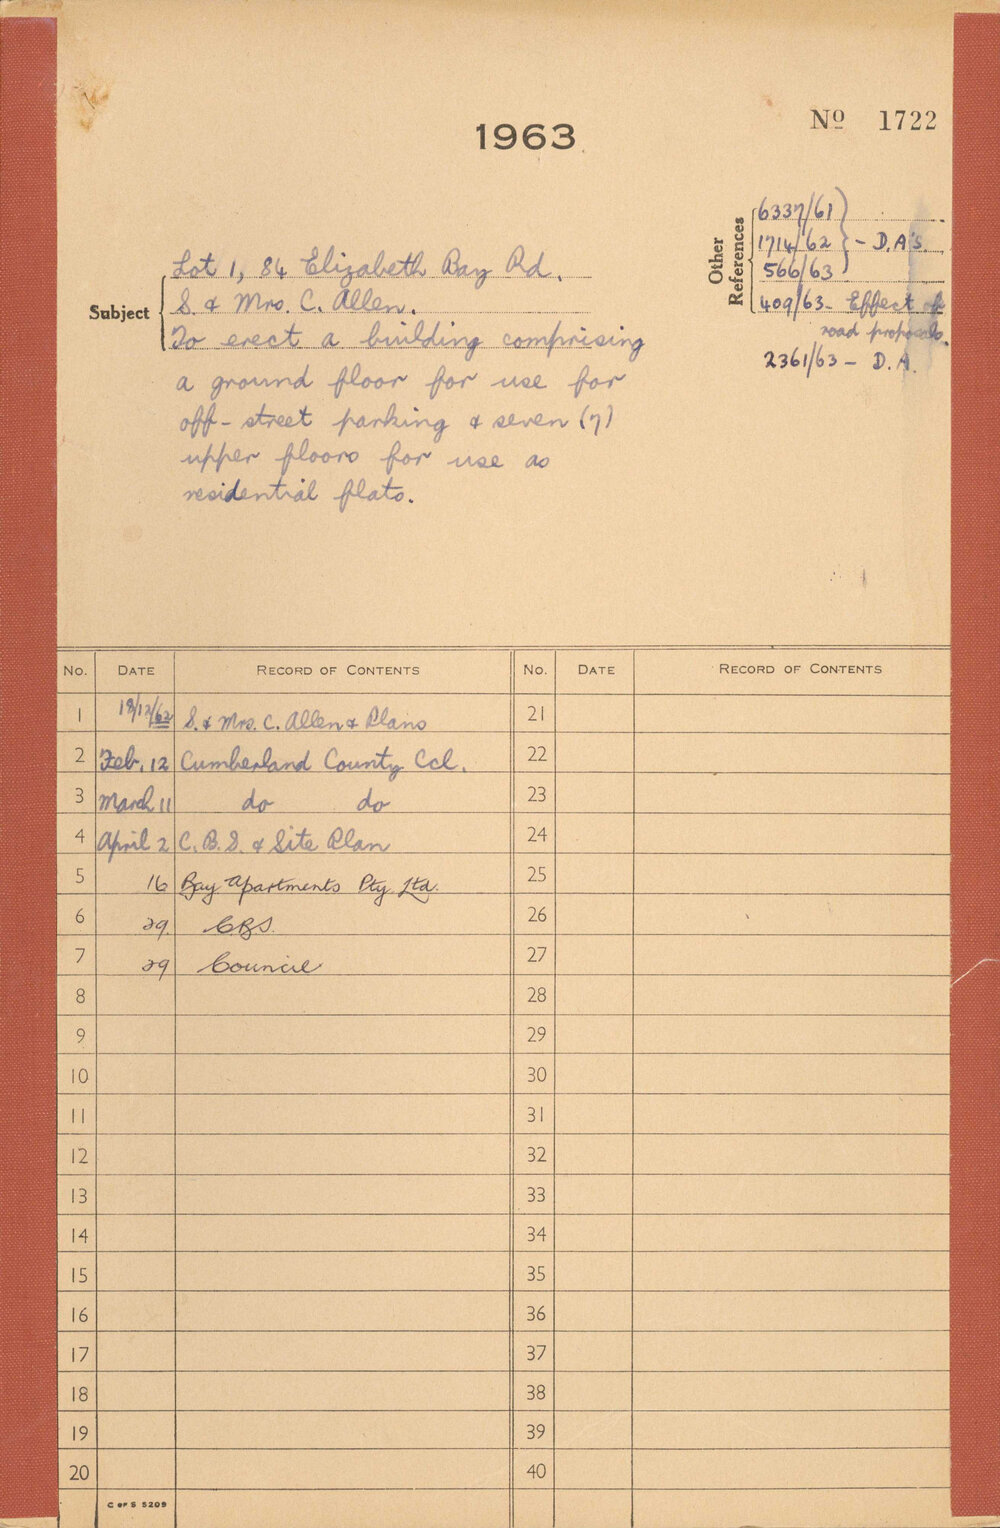 1963
Nº 1722
Other References
6337/61
1714/62 } - D.A's.
566/63
409/63 - Effect of
road proposals.
2361/63 - D.A.
Subject
Lot 1, 84 Elizabeth Bay Rd.
S. & Mrs. C. Allen.
To erect a building comprising
a ground floor for use for
off-street parking & seven (7)
upper floors for use as
residential flats.
No. DATE RECORD OF CONTENTS No. DATE RECORD OF CONTENTS
1 18/12/62 S. & Mrs. C. Allen & Plans 21
2 Feb. 12 Cumberland County Ccl. 22
3 March 11 do do 23
4 April 2 C.B.S. & Site Plan 24
5 16 Bay Apartments Pty. Ltd. 25
6 29. CBS. 26
7 29 Council 27
8 28
9 29
10 30
11 31
12 32
13 33
14 34
15 35
16 36
17 37
18 38
19 39
20 40
C OF S 5209